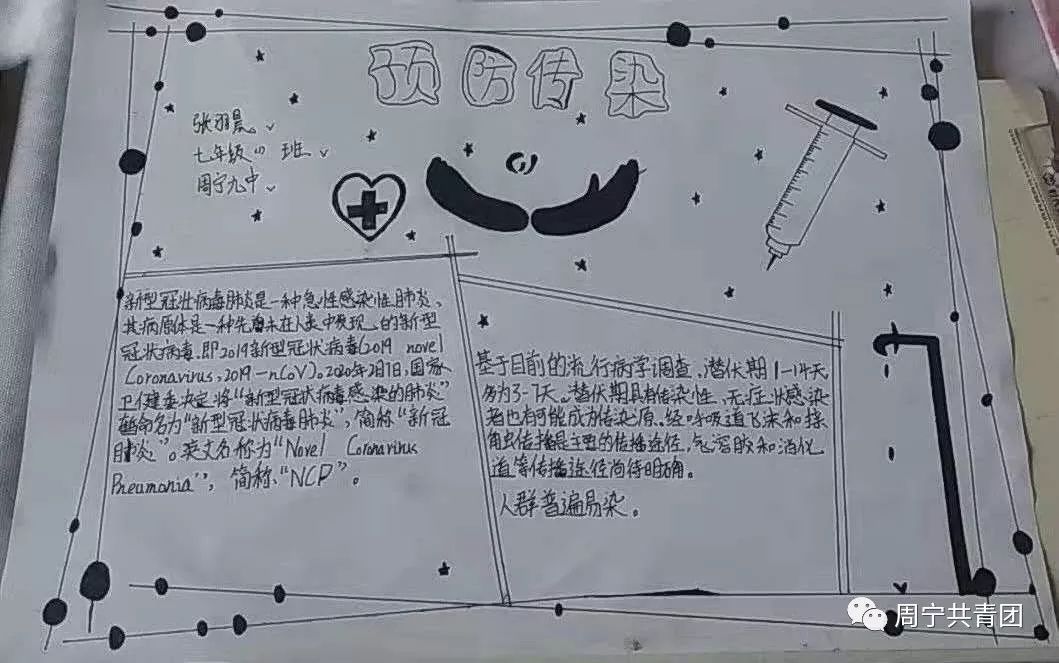 预防传染
张羽晨
七年级(1)班
周宁九中
新型冠状病毒肺炎是一种急性感染性肺炎,
其病原体是一种先前未在人类中发现的新型
冠状病毒,即2019新型冠状病毒(2019 novel
Coronavirus,2019-nCoV)。2020年2月7日,国家
卫健委决定将“新型冠状病毒感染的肺炎”
暂命名为“新型冠状病毒肺炎”,简称“新冠
肺炎”。英文名称为“Novel Coronavirus
Pneumonia”,简称“NCP”。
基于目前的流行病学调查,潜伏期1-14天
多为3-7天。潜伏期具有传染性,无症状感染
者也有可能成为传染原。经呼吸道飞沫和接
触传播是主要的传播途径,气溶胶和消化
道等传播途径尚待明确。
人群普遍易染。
周宁共青团